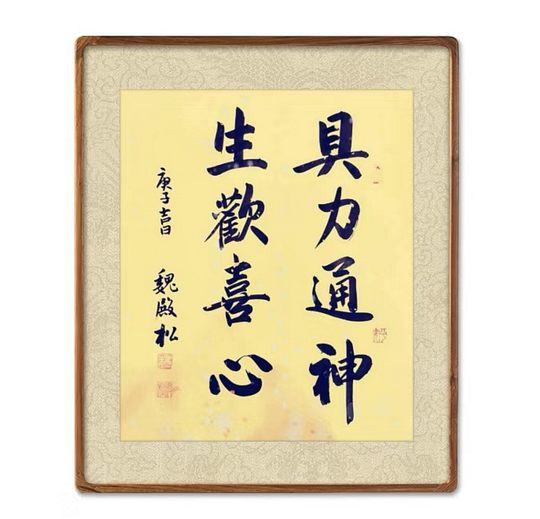 具力通神
生歡喜心
庚子吉日 魏殿松